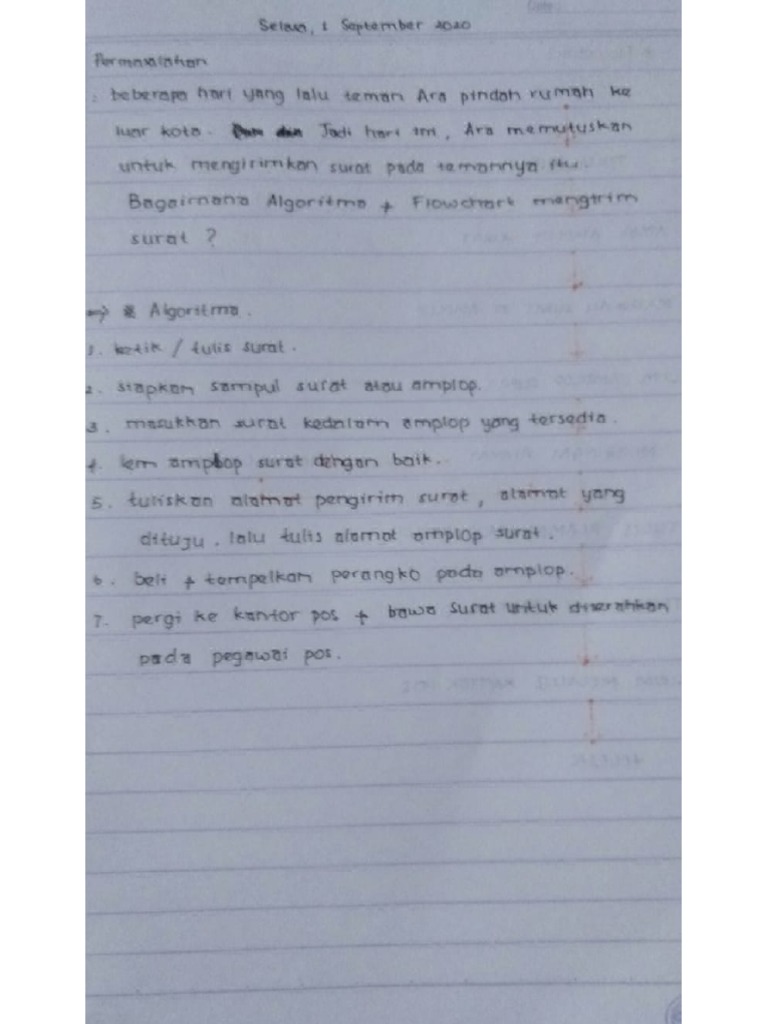 Selasa, 1 September 2020
Permasalahan
: beberapa hari yang lalu teman Ara pindah rumah ke
luar kota. Jadi hari ini, Ara memutuskan
untuk mengirimkan surat pada temannya itu.
Bagaimana Algoritma + Flowchart mengirim
surat ?
=> * Algoritma.
1. ketik / tulis surat.
2. siapkan sampul surat atau amplop.
3. masukkan surat kedalam amplop yang tersedia.
4. lem amplop surat dengan baik.
5. tuliskan alamat pengirim surat, alamat yang
dituju. lalu tulis alamat amplop surat.
6. beli + tempelkan perangko pada amplop.
7. pergi ke kantor pos + bawa surat untuk diserahkan
pada pegawai pos.